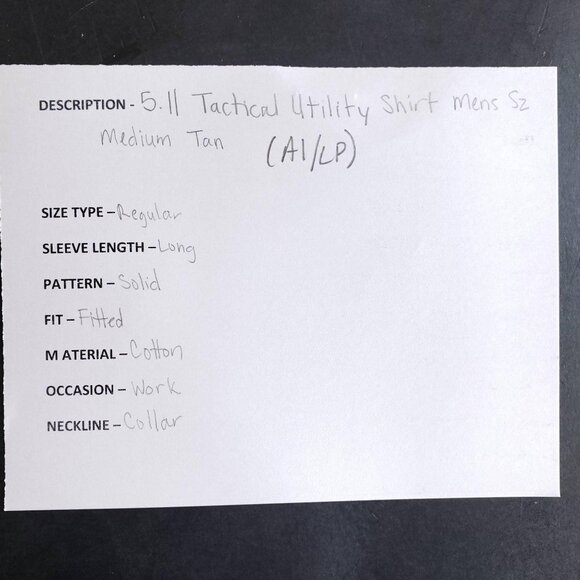 DESCRIPTION - 5.11 Tactical Utility Shirt Mens Sz
Medium Tan (A1/LP)
SIZE TYPE – Regular
SLEEVE LENGTH – Long
PATTERN – Solid
FIT – Fitted
M ATERIAL – Cotton
OCCASION – Work
NECKLINE – Collar